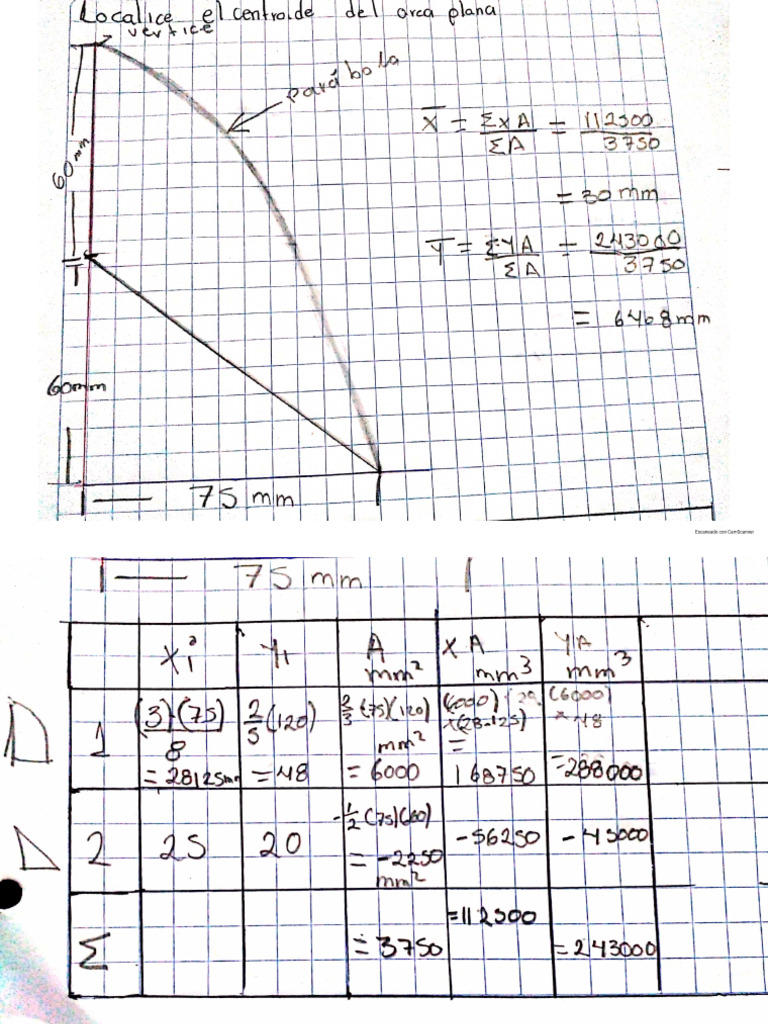 Localice el centroide del area plana
vertice
parábola
60mm
60mm
75 mm
X̄ = ΣXA/ΣA = 112500/3750
= 30 mm
Ȳ = ΣYA/ΣA = 243000/3750
= 64.8mm
Escaneado con CamScanner
75 mm
Y1 A mm² XA mm³ YA mm³
1 (3)(75)/8 = 28.125mm 2/5(120) = 48 2/3(75)(120) mm² = 6000 (6000) x(28.125) = 168750 (6000) x 48 = 288000
2 25 20 -1/2(75)(60) = -2250 mm² -56250 - 45000
Σ = 3750 = 112500 = 243000